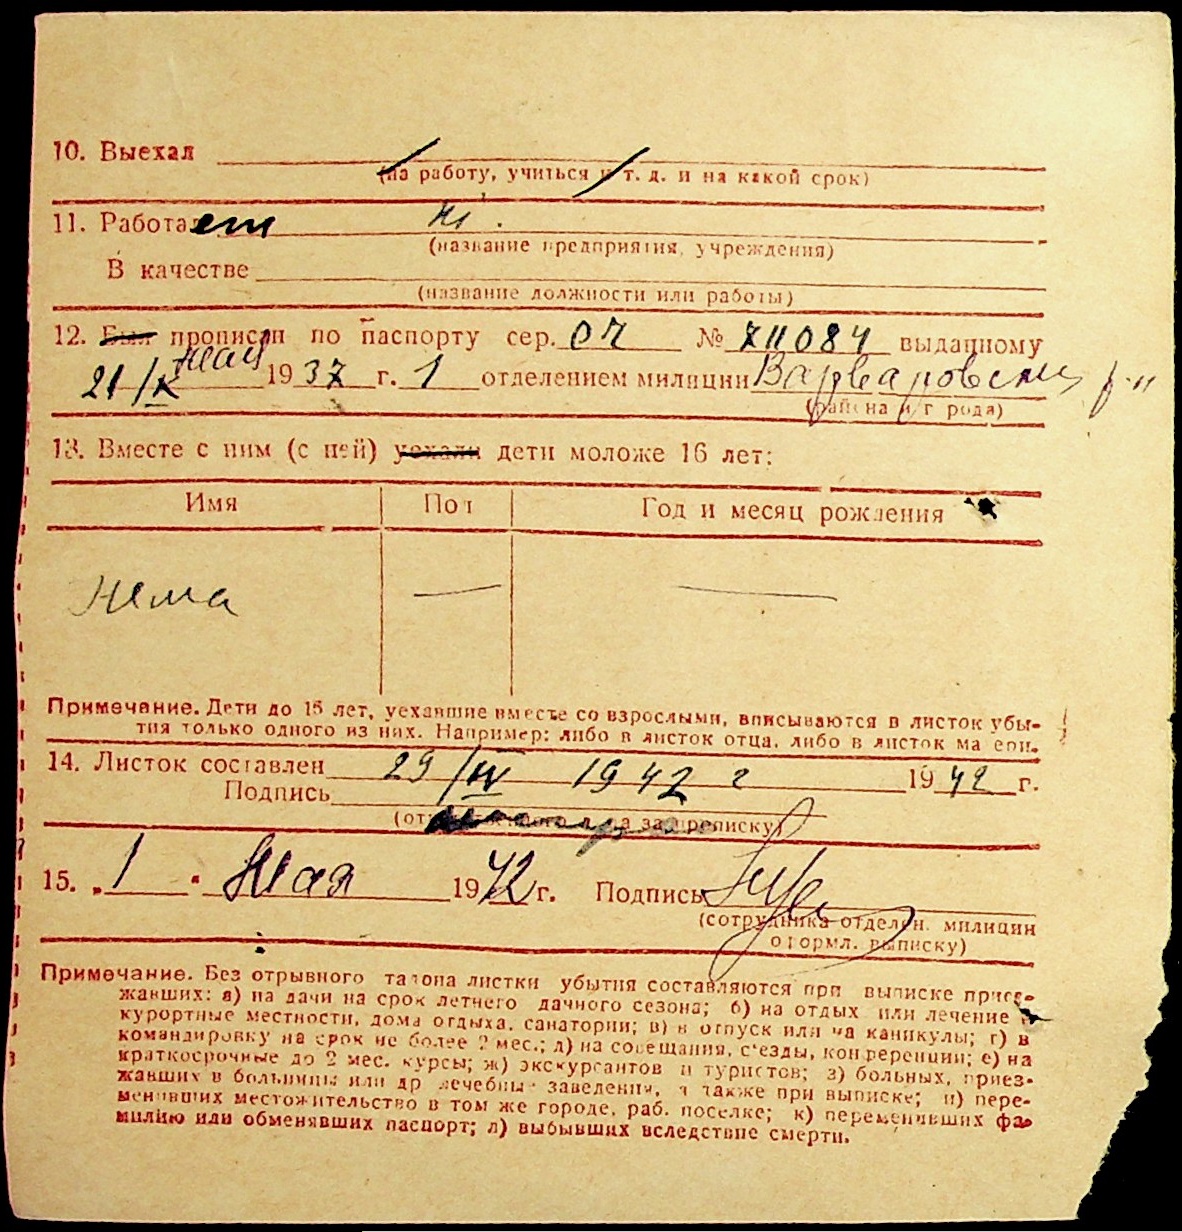 10. Выехал
(на работу, учиться и т. д. и на какой срок)
11. Работает ні.
(название предприятия, учреждения)
В качестве
(название должности или работы)
12. Был прописан по паспорту сер. № выданному
21/IX 1937 г. 1 отделением милиции Варваровским р-н
(района и г рода)
13. Вместе с ним (с ней) уехали дети моложе 16 лет:
Имя Пол Год и месяц рождения
Нема — —
Примечание. Дети до 15 лет, уехавшие вместе со взрослыми, вписываются в листок убы-
тия только одного из них. Например: либо в листок отца, либо в листок ма ери.
14. Листок составлен 29/IV 1942 г 1942 г.
Подпись
(от за прописку)
15. „1" Мая 1942 г. Подпись
(сотрудника отделен. милиции
оформл. выписку)
Примечание. Без отрывного талона листки убытия составляются при выписке приез-
жавших: а) на дачи на срок летнего дачного сезона; б) на отдых или лечение в
курортные местности, дома отдыха, санатории; в) в отпуск или на каникулы; г) в
командировку на срок не более 2 мес.; д) на совещания, с'езды, конференции; е) на
краткосрочные до 2 мес. курсы; ж) экскурсантов и туристов; з) больных, приез-
жавших в больницы или др лечебны заведения, а также при выписке; и) пере-
менивших местожительство в том же городе, раб. поселке; к) переменивших фа-
милию или обменявших паспорт; л) выбывших вследствие смерти.